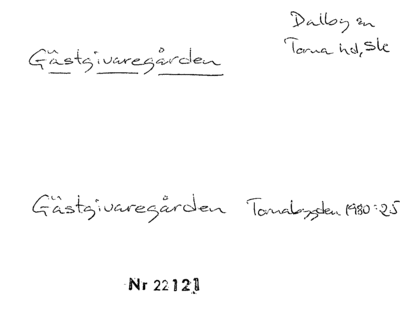 Dalby sn
Torna hd, Sk
Gästgivaregården
Gästgivaregården Tornabygden 1980:25
Nr 22121